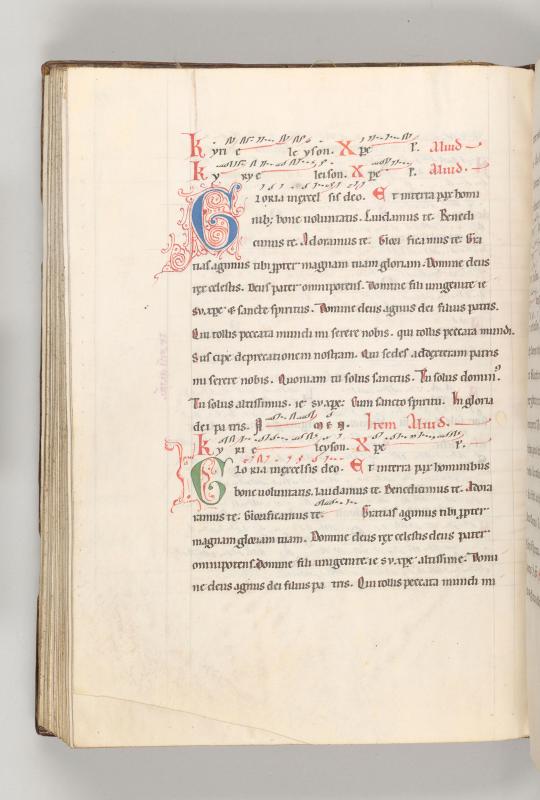 Kyri e le yson. Xpe r. Aliud.
Ky ry e leison. Xpe r. Aliud.
Gloria in excel sis deo. Et in terra pax homi
nib; bone voluntatis. Laudamus te. Bene di
cimus te. Adoramus te. Glori ficamus te. Gra
tias agimus tibi ppter magnam tuam gloriam. Domine deus
rex celestis. Deus pater omnipotens. Domine fili unigenite ie
su xpe & sancte spiritus. Domine deus agnus dei filius patris.
Qui tollis peccata mundi mi serere nobis. qui tollis peccata mundi.
Sus cipe deprecationem nostram. Qui sedes ad dexteram patris
mi serere nobis. Quoniam tu solus sanctus. Tu solus domin9.
Tu solus altissimus. ie su xpe. Cum sancto spiritu. In gloria
dei pa tris. A m e n. Item Aliud.
Ky ri e leyson. Xpe r.
Glo ria in excelsis deo. Et in terra pax hominibus
bone voluntatis. laudamus te. Benedicimus te. Adora
ramus te. Glorificamus te. Gratias agimus tibi ppter
magnam gloriam tuam. Domine deus rex celestis deus pater
omnipotens. Domine fili unigenite ie su xpe altissime. Domi
ne deus agnus dei filius pa tris. Qui tollis peccata mundi mi